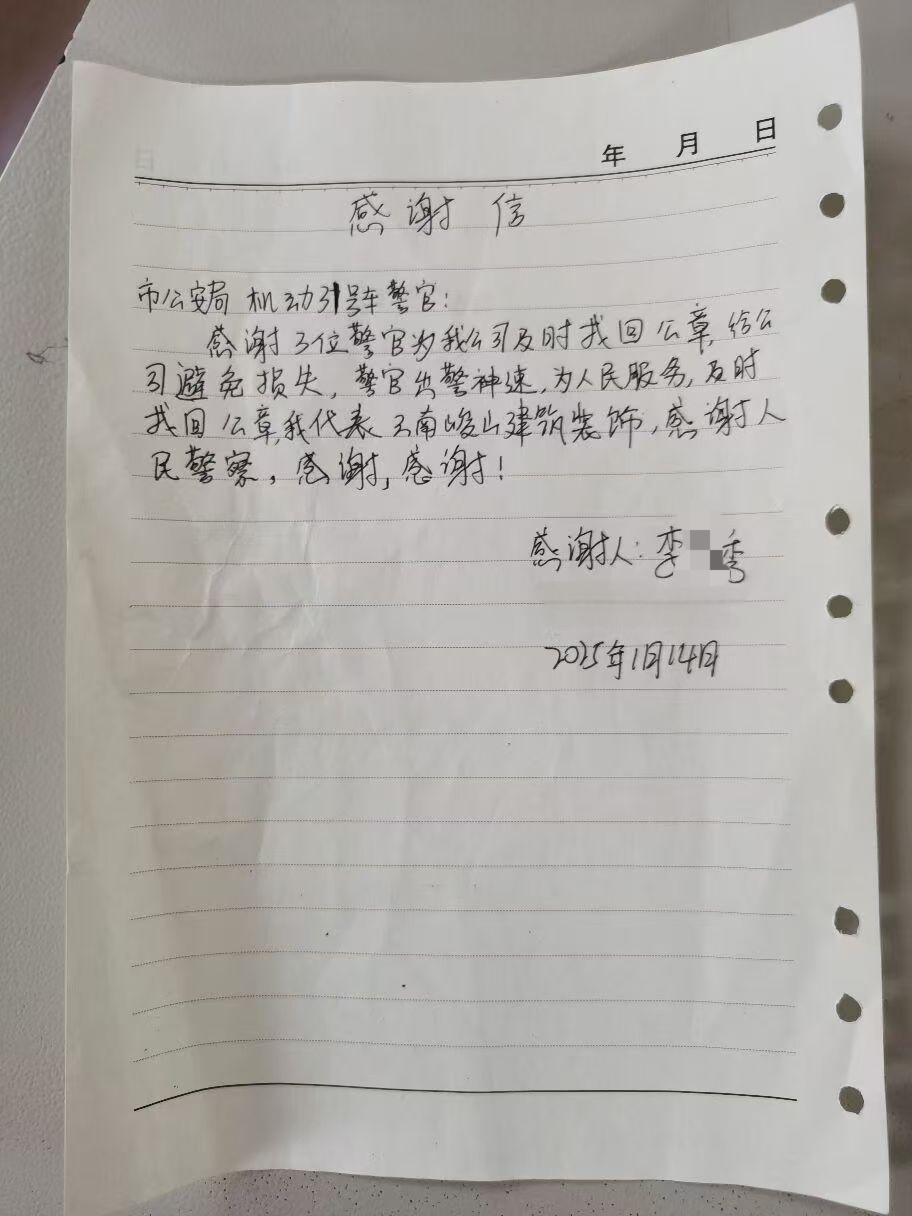 年 月 日
感谢信
市公安局 机动引号车警官:
感谢3位警官为我公司及时找回公章,给公
司避免损失,警官出警神速,为人民服务,及时
找回公章,我代表云南峻山建筑装饰,感谢人
民警察,感谢,感谢!
感谢人:李 秀
2025年1月14日